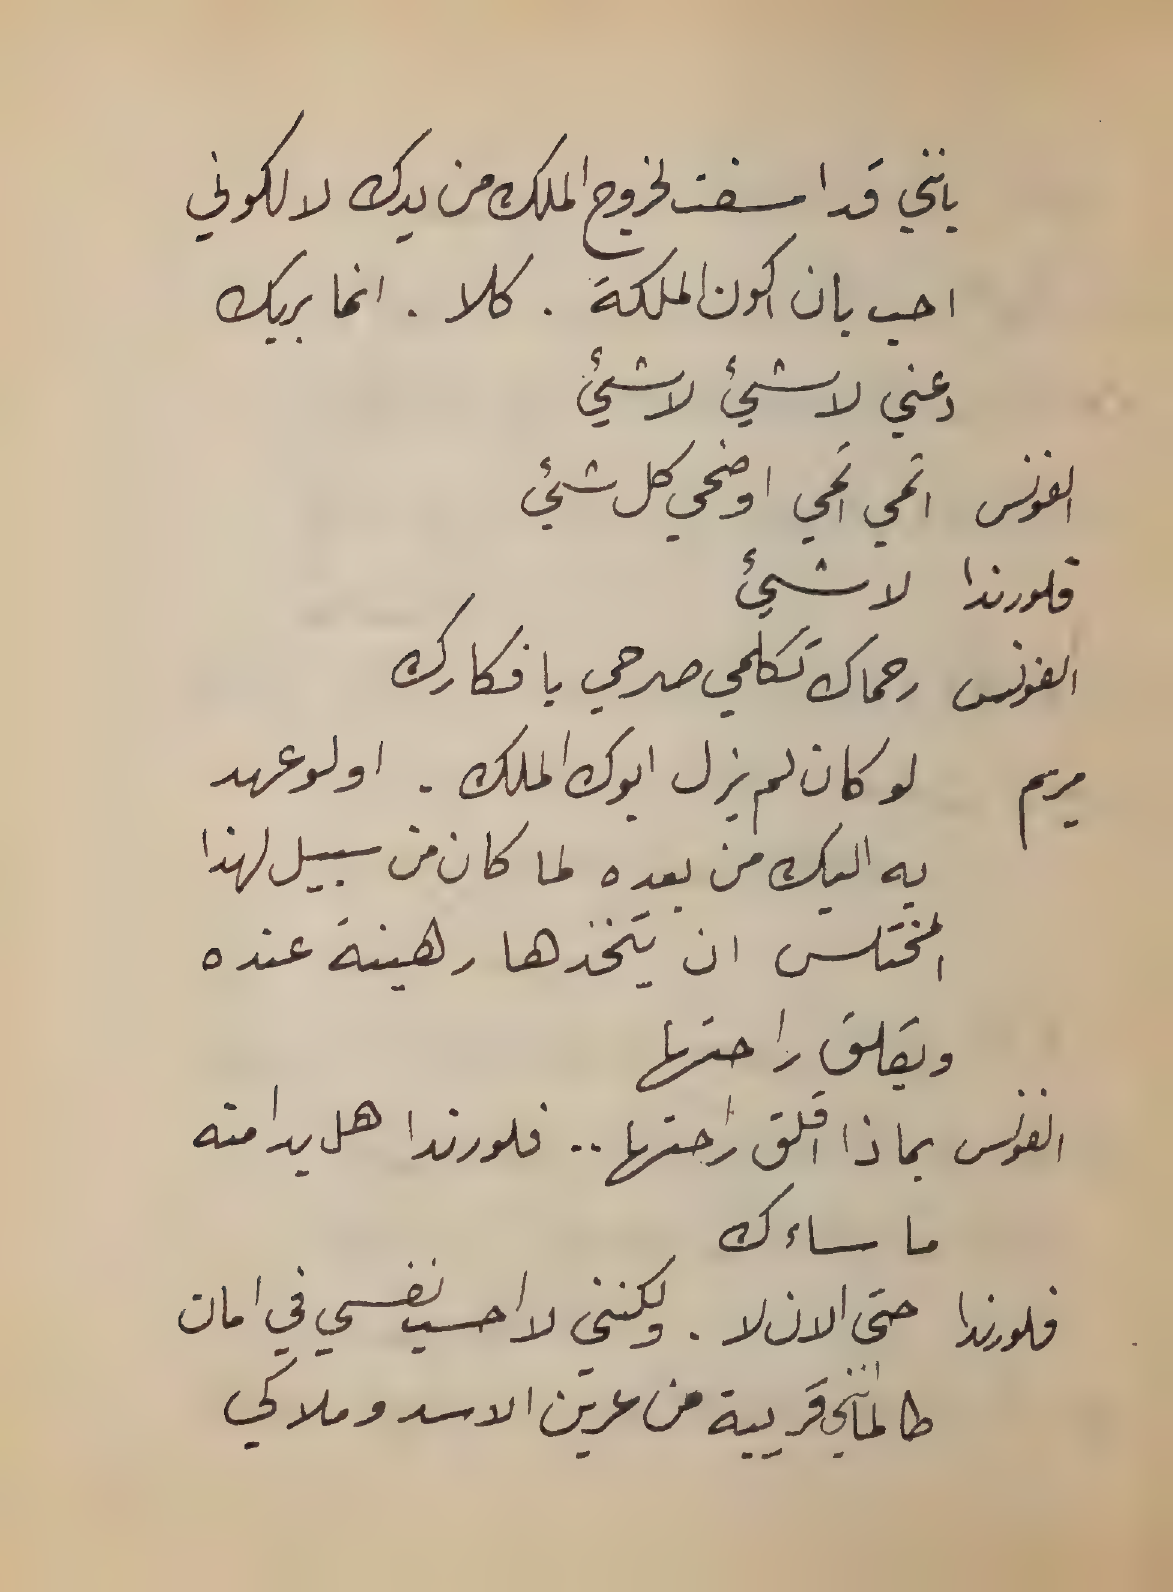 بانني قد اسفت لخروج الملك من يدك لا لكوني
احب بان اكون الملكة . كلا . انما بريك
دعني لاشيئ لاشيئ
الفونس اتمي اتمي اوضحي كل شيئ
فلورندا لاشيئ
الفونس رحماك تكلمي صرحي بافكارك
مريم لو كان لم يزل ابوك الملك . او لو عهد
به اليك من بعده لما كان من سبيل لهذا
المختلس ان يتخذها رهينة عنده
ويقلق راحتها
الفونس بماذا اقلق راحتها .. فلورندا هل بدا منه
ما ساءك
فلورندا حتى الان لا . ولكنني لا احسب نفسي في امان
طالما انني قريبة من عرين الاسد وملاكي